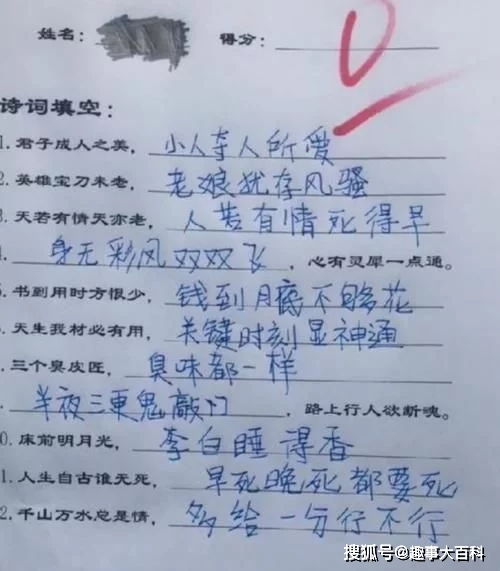 姓名： 得分： 0
诗词填空：
1. 君子成人之美， 小人夺人所爱
2. 英雄宝刀未老， 老娘犹存风骚
3 天若有情天亦老， 人若有情死得早
身无彩凤双双飞 ， 心有灵犀一点通。
书到用时方恨少， 钱到月底不够花
天生我材必有用， 关键时刻显神通
. 三个臭皮匠， 臭味都一样
. 半夜三更鬼敲门 ， 路上行人欲断魂。
0. 床前明月光， 李白睡得香
1. 人生自古谁无死， 早死晚死都要死
2. 千山万水总是情， 多给一分行不行
搜狐号@趣事大百科